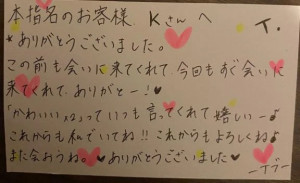 本指名のお客様 Kさんへ T.
*ありがとうございました。
この前も会いに来てくれて、今回もすぐ会いに
来てくれて、ありがとー!♥
「かわいい」っていつも言ってくれて嬉しいー♪
これからも私でいてね!!これからもよろしくね♪
また会おうね。♥ありがとうございました♥